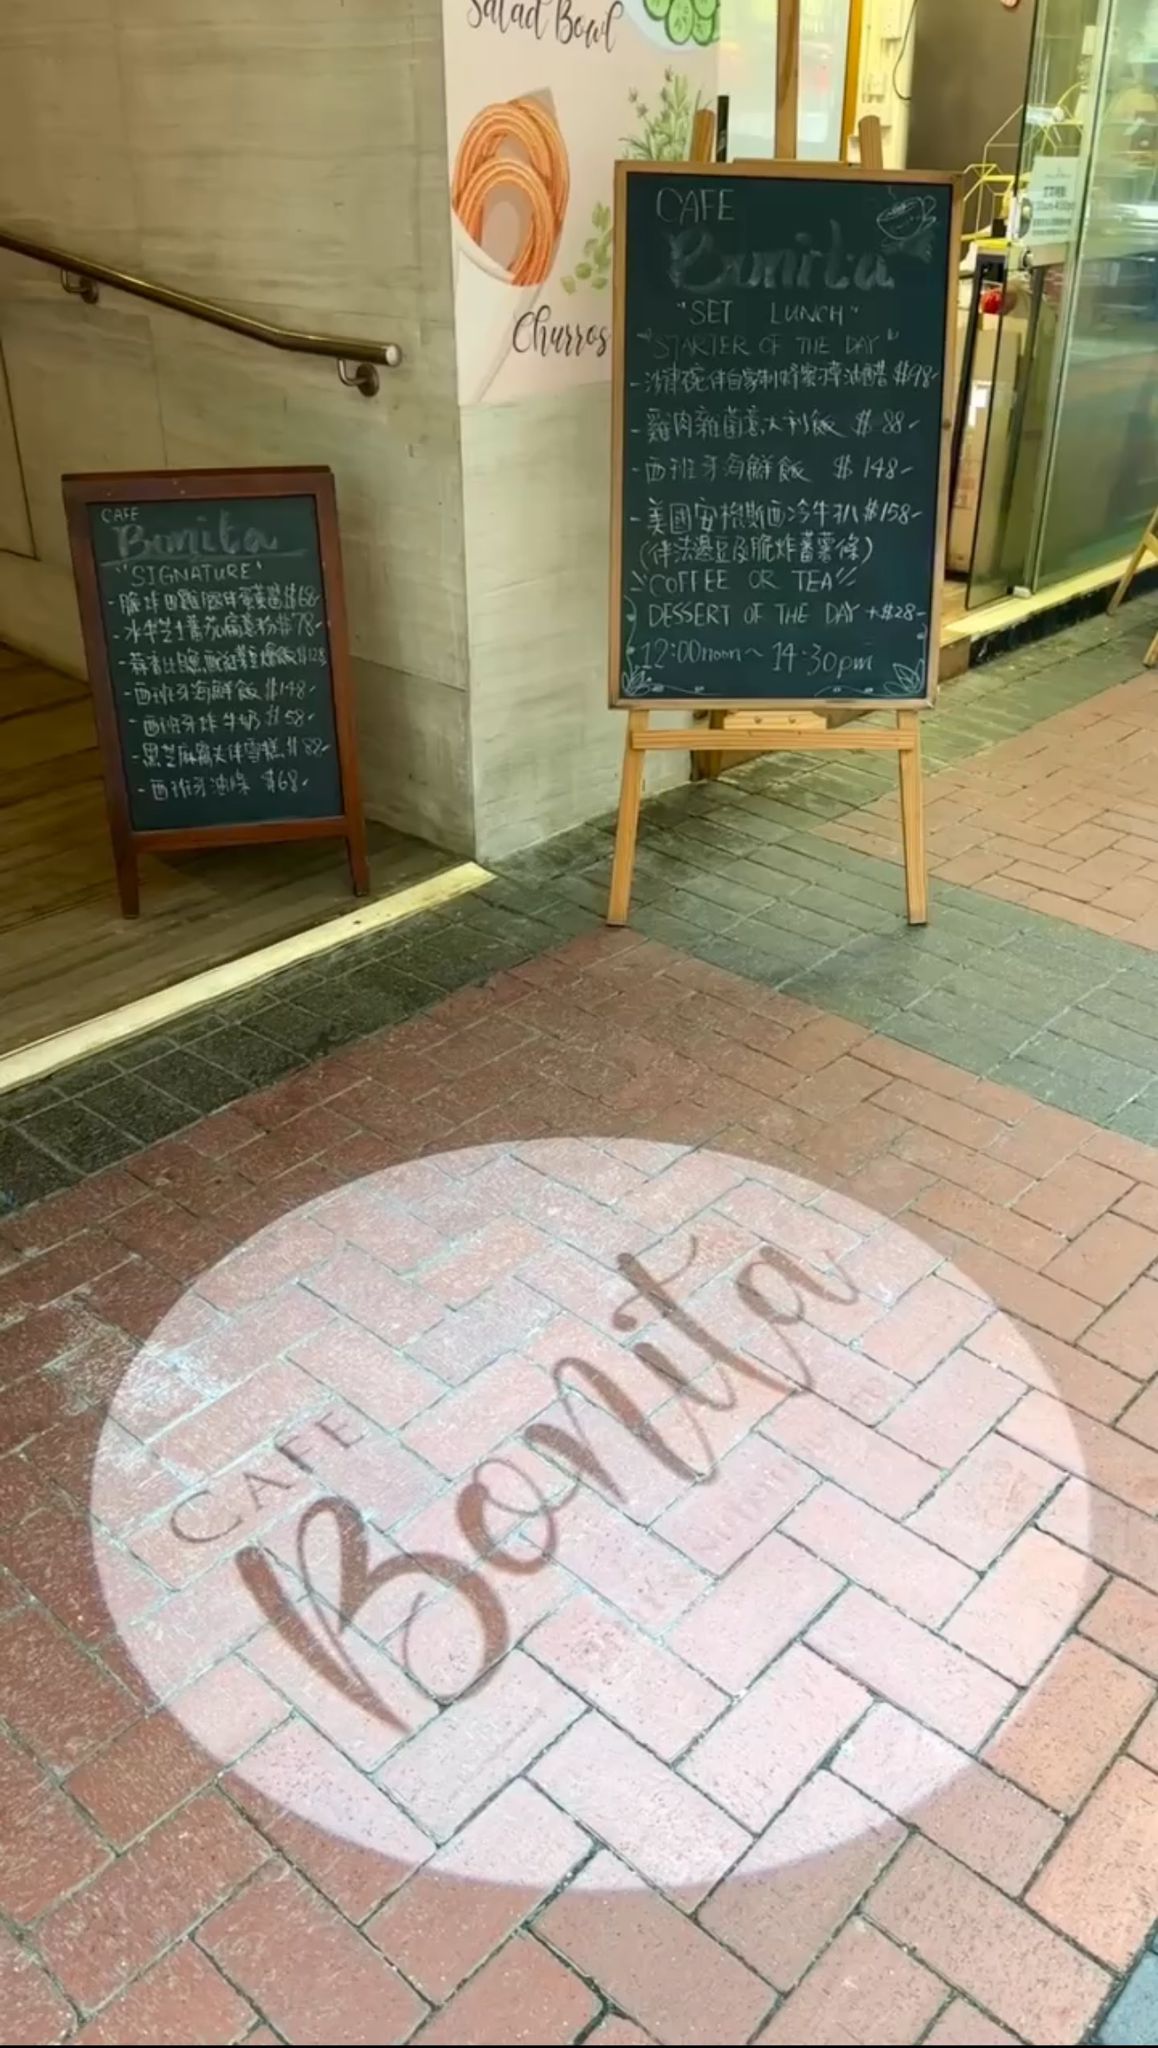 Salad Bowl
Churros
CAFE
Bonita
"SET LUNCH"
"STARTER OF THE DAY"
$98-
-雞肉雜菌意大利飯 $88-
-西班牙海鮮飯 $148-
-美國安格斯西冷牛扒 $158-
(伴法邊豆及脆炸蕃薯條)
"COFFEE OR TEA"
DESSERT OF THE DAY +$28-
12:00noon~14:30pm
CAFE
Bonita
"SIGNATURE"
$68-
-水牛芝士蕃茄扁意粉 $78-
$128
-西班牙海鮮飯 $148-
-西班牙炸牛奶 $58-
-黑芝麻窩夫伴雪糕 $88-
-西班牙油條 $68-
CAFE
Bonita